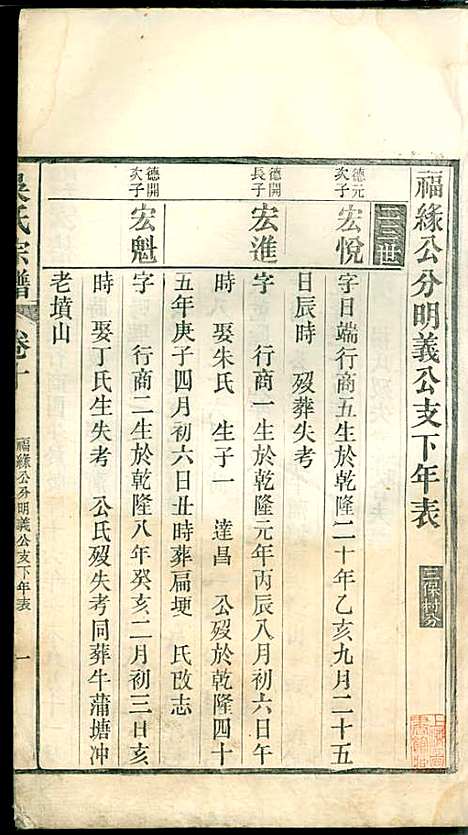 福緣公分明義公支下年表
三保村分
三三世
德元次子
宏悅
字日端行商五生於乾隆二十年乙亥九月二十五
日辰時 歿葬失考
德開長子
宏進
字 行商一生於乾隆元年丙辰八月初六日午
時 娶朱氏 生子一 達昌 公歿於乾隆四十
五年庚子四月初六日丑時葬扁埂 氏改志
德開次子
宏魁
字 行商二生於乾隆八年癸亥二月初三日亥
時 娶丁氏生失考 公氏歿失考同葬牛蒲塘冲
老墳山
吳氏宗譜
卷十
福緣公分明義公支下年表
一